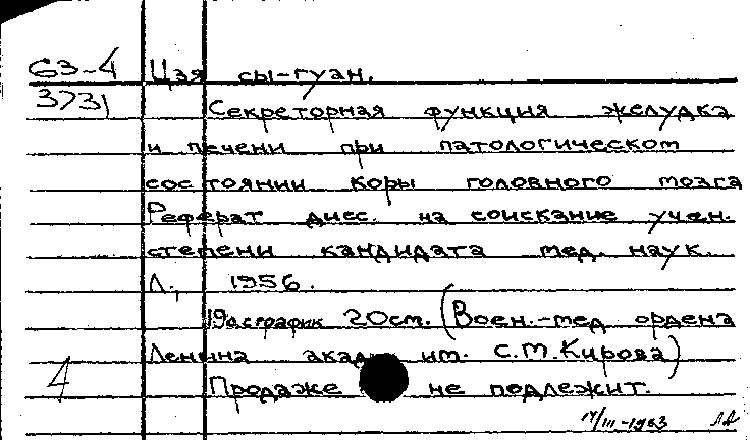 63-4 Цзя сы-гуан.
3731 Секреторная функция желудка
и печени при патологическом
состоянии коры головного мозга
Реферат дисс. на соискание учен.
степени кандидата мед. наук.
Л., 1956.
19с. с график 20см. (Воен.-мед ордена
Ленина акад. им. С.М.Кирова)
4 Продаже не подлежит.
/III-1963